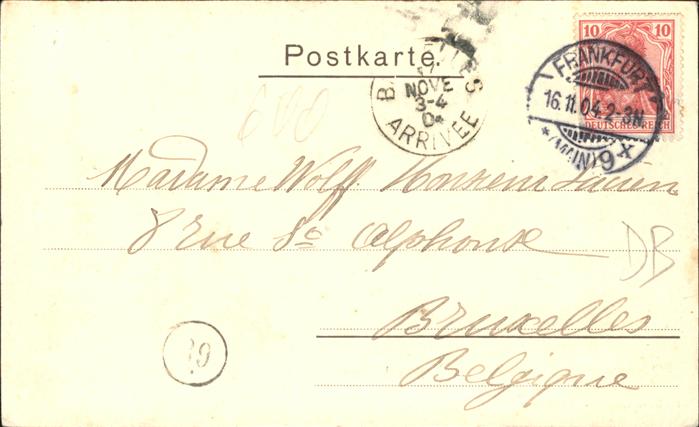 10 10
DEUTSCHES REICH
FRANKFURT
16.11.04.2-3N.
*(MAIN)9*
Postkarte.
BRUXELLES
17
NOVE
3-4
04
ARRIVEE
Madame Wolff Monsieur Lucien
8 rue St Alphonse
DB
Bruxelles
Belgique